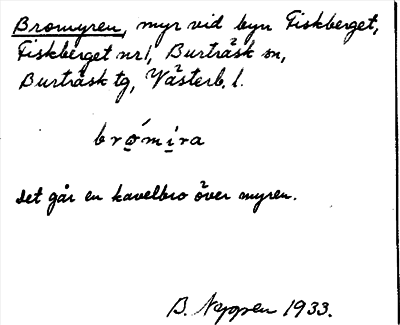 Bromyren, myr vid byn Fiskberget,
Fiskberget nr 1, Burträsk sn,
Burträsk tg, Västerb. l.
brómira
Det går en kavelbro över myren.
B. Neppen 1933.